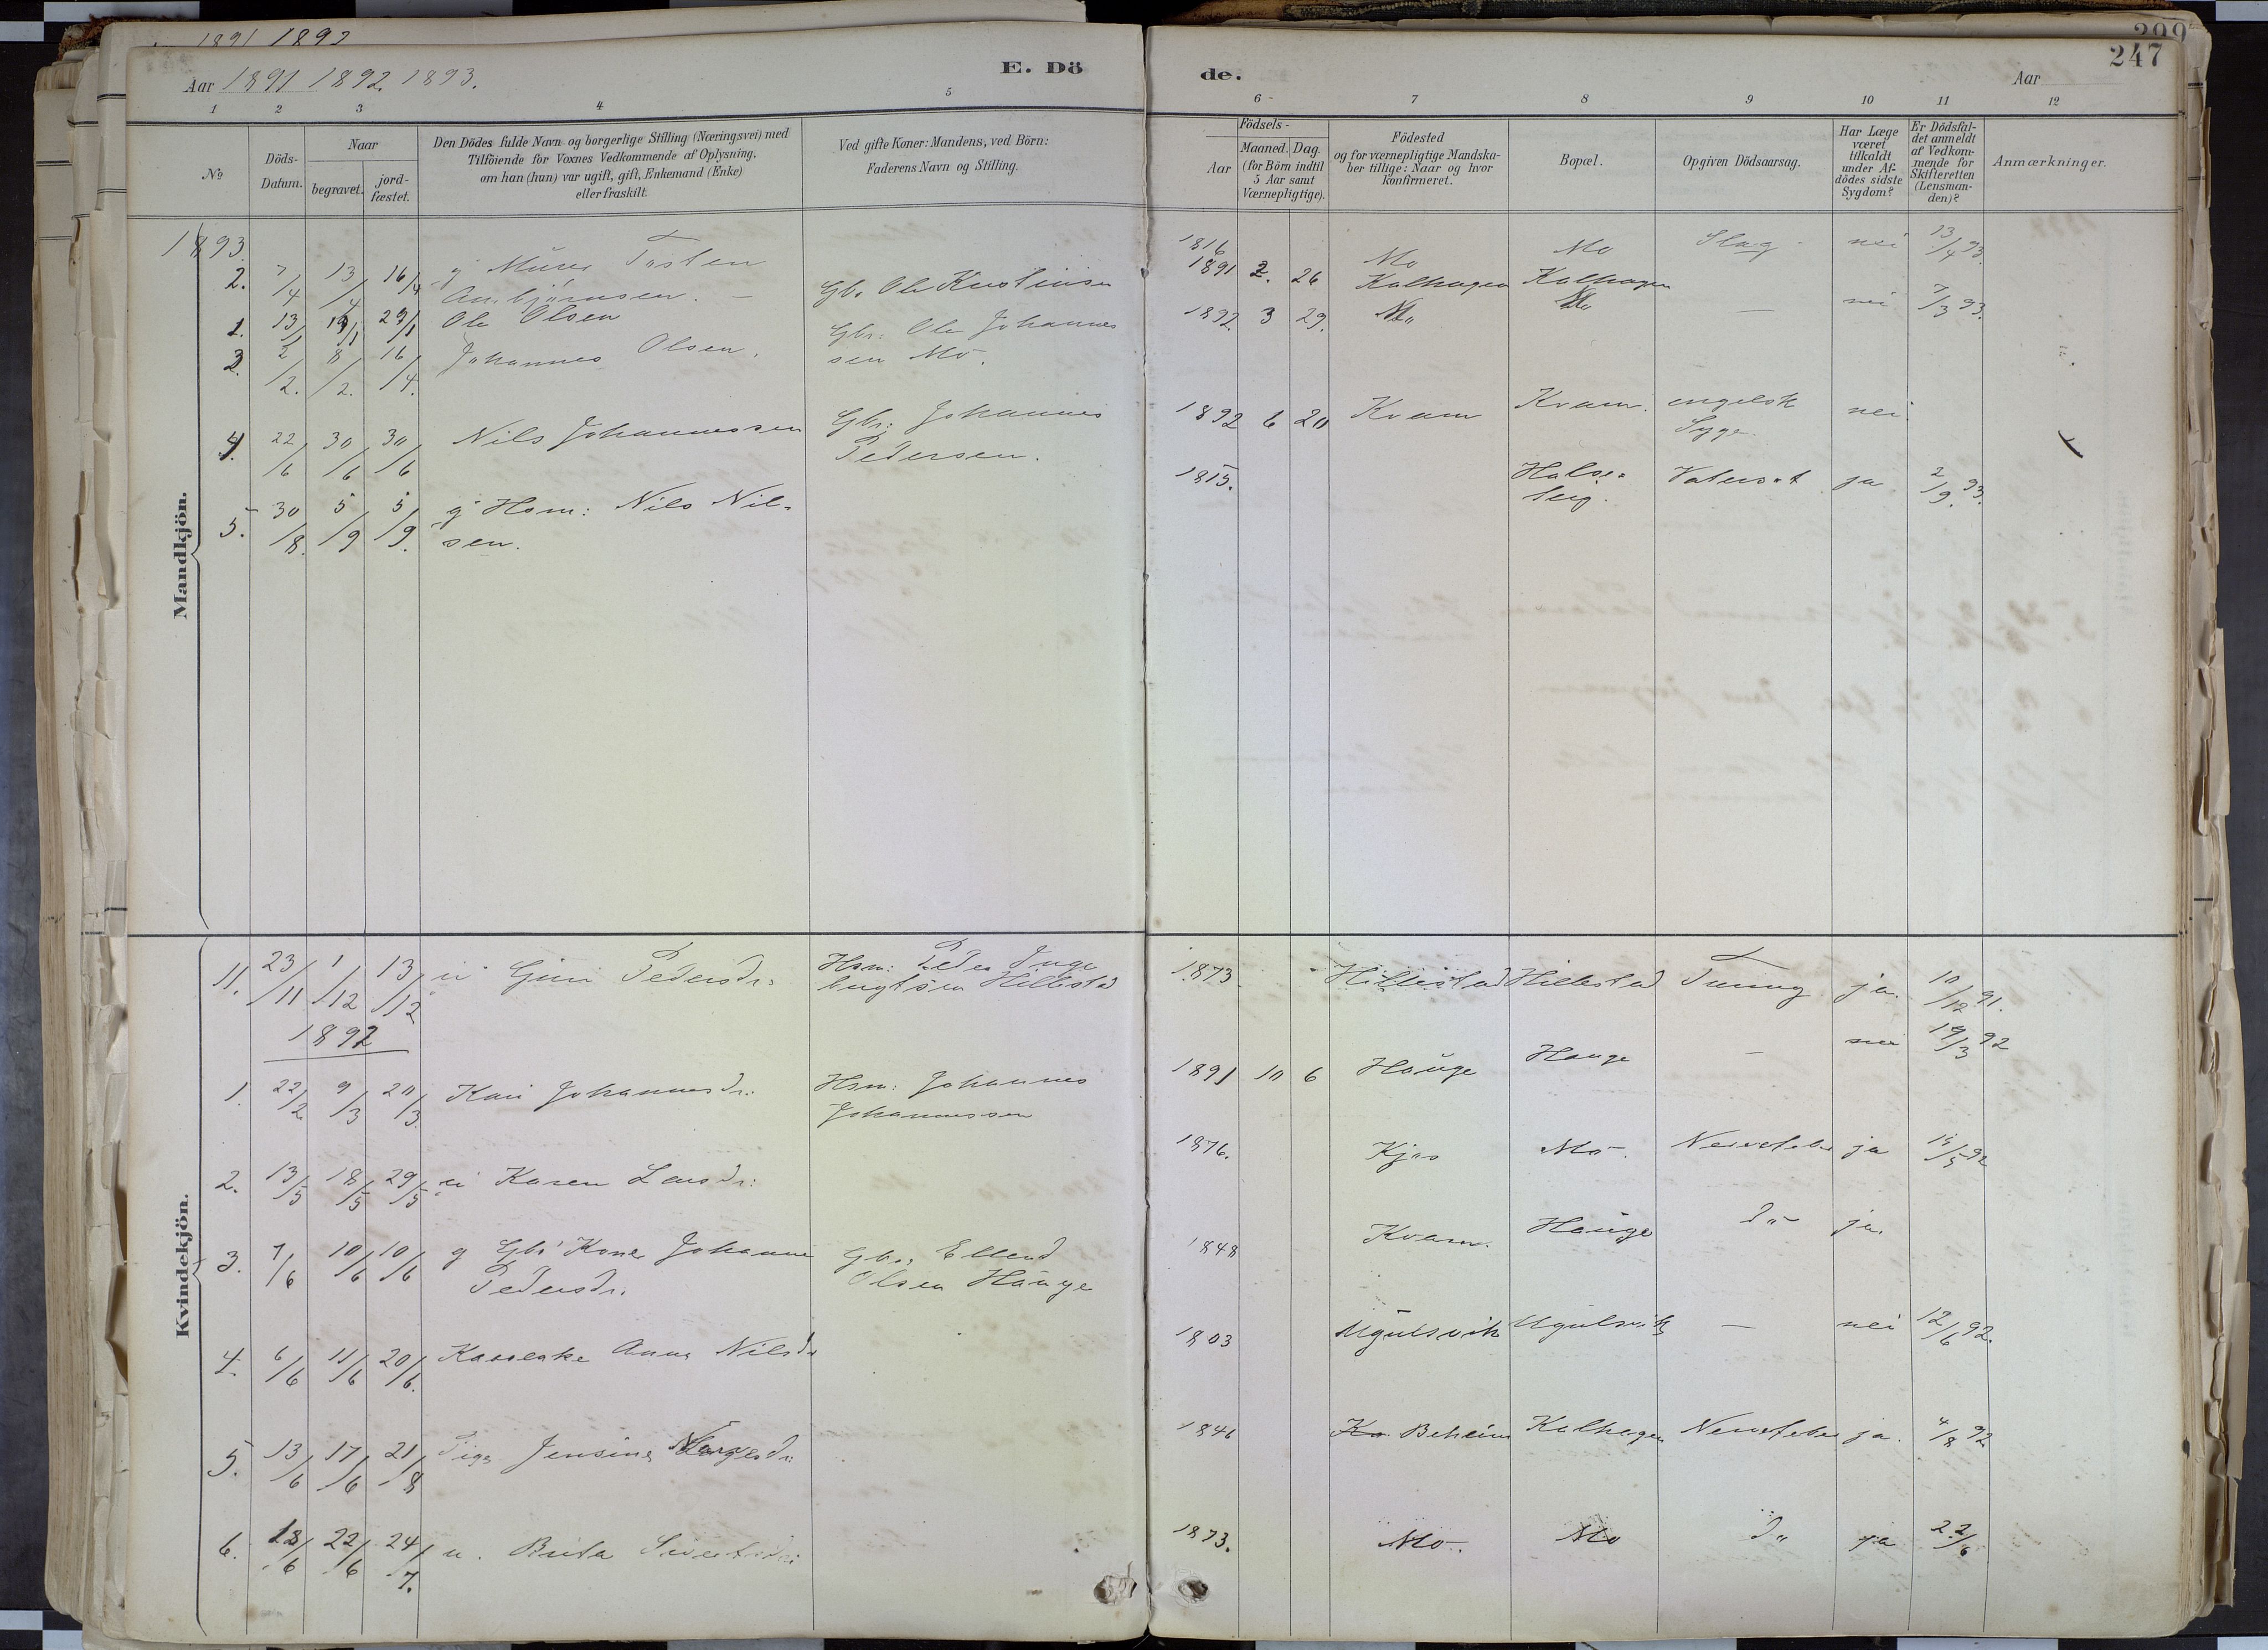 1891 1892
299
247
Aar 1891 1892. 1893.
E. Dö
de.
Aar
1 2 3 4 5 6 7 8 9 10 11 12
No
Döds-
Datum.
Naar
begravet.
jord-
fæstet.
Den Dödes fulde Navn og borgerlige Stilling (Næringsvei) med
Tilföiende for Voxnes Vedkommende af Oplysning,
om han (hun) var ugift, gift, Enkemand (Enke)
eller fraskilt.
Ved gifte Koner: Mandens, ved Börn:
Faderens Navn og Stilling.
Födsels-
Aar
Maaned. Dag.
(for Börn indtil
5 Aar samt
Værnepligtige).
Födested
og for værnepligtige Mandska-
ber tillige: Naar og hvor
konfirmeret.
Bopæl.
Opgiven Dödsaarsag.
Har Læge
været
tilkaldt
under Af-
dödes sidste
Sygdom?
Er Dödsfal-
det anmeldt
af Vedkom-
mende for
Skifteretten
(Lensman-
den)?
Anmærkninger.
Mandkjön.
1893.
2. 7/4 13/4 16/4 g Murer Tosten 1816 Mo Mo Slag nei 13/4 93.
Ambjørnsen. -
1. 13/1 19/1 29/1 Ole Olsen Gbr. Ole 1891 2. 26 Kalhagen Kalhagen
3. 2/2. 8/2. 16/4. Johannes Olsen. Gbr: Ole Johannes
sen Mo. 1892. 3 29. Mo Mo — nei 7/3 93.
4. 22/6 30/6 30/6 Nils Johannessen Gbr: Johannes
Pedersen. 1892 6 20 Kvam Kvam. engelsk
Syge. nei.
5. 30/8. 5/9 5/9. g Hsm: Nils Nil-
sen. 1815. Halse-
berg. Vatersot ja 2/9. 93.
Kvindekjön.
11. 23/11 1/12 13/12 ú Guri Pedersdr: Hsm: Peder Inge
brigtsen Hillestad 1873. Hillestad Hillestad Tæring ja. 10/12 91.
1892
1. 22/2. 9/3 20/3. Kari Johannesdr: Hsm: Johannes
Johannessen 1891 10 6 Hauge Hauge — nei 19/3 92
2. 13/5 18/5 29/5 ú Karen Larsdr: 1876. Kjøs Mo. Nervefeber ja 15/5 92
3. 7/6 10/6 10/6 g Gbr Kone Johanne
Pedersdr. Gbr. Ellend
Olsen Hauge 1848 Kvam. Hauge do ja.
4. 6/6 11/6 20/6. Kaarenke Anna Nilsdr 1803 Ugulsvik Ugulsvik — nei 12/6 92.
5. 13/6 17/6 21/8 Pige Jensine 1846 Beheim Kalhagen Nervefeber ja. 4/8 92
6. 18/6 22/6 24/7. u. Brita Sivertsdr: 1873. Mo. Mo do ja 22/6